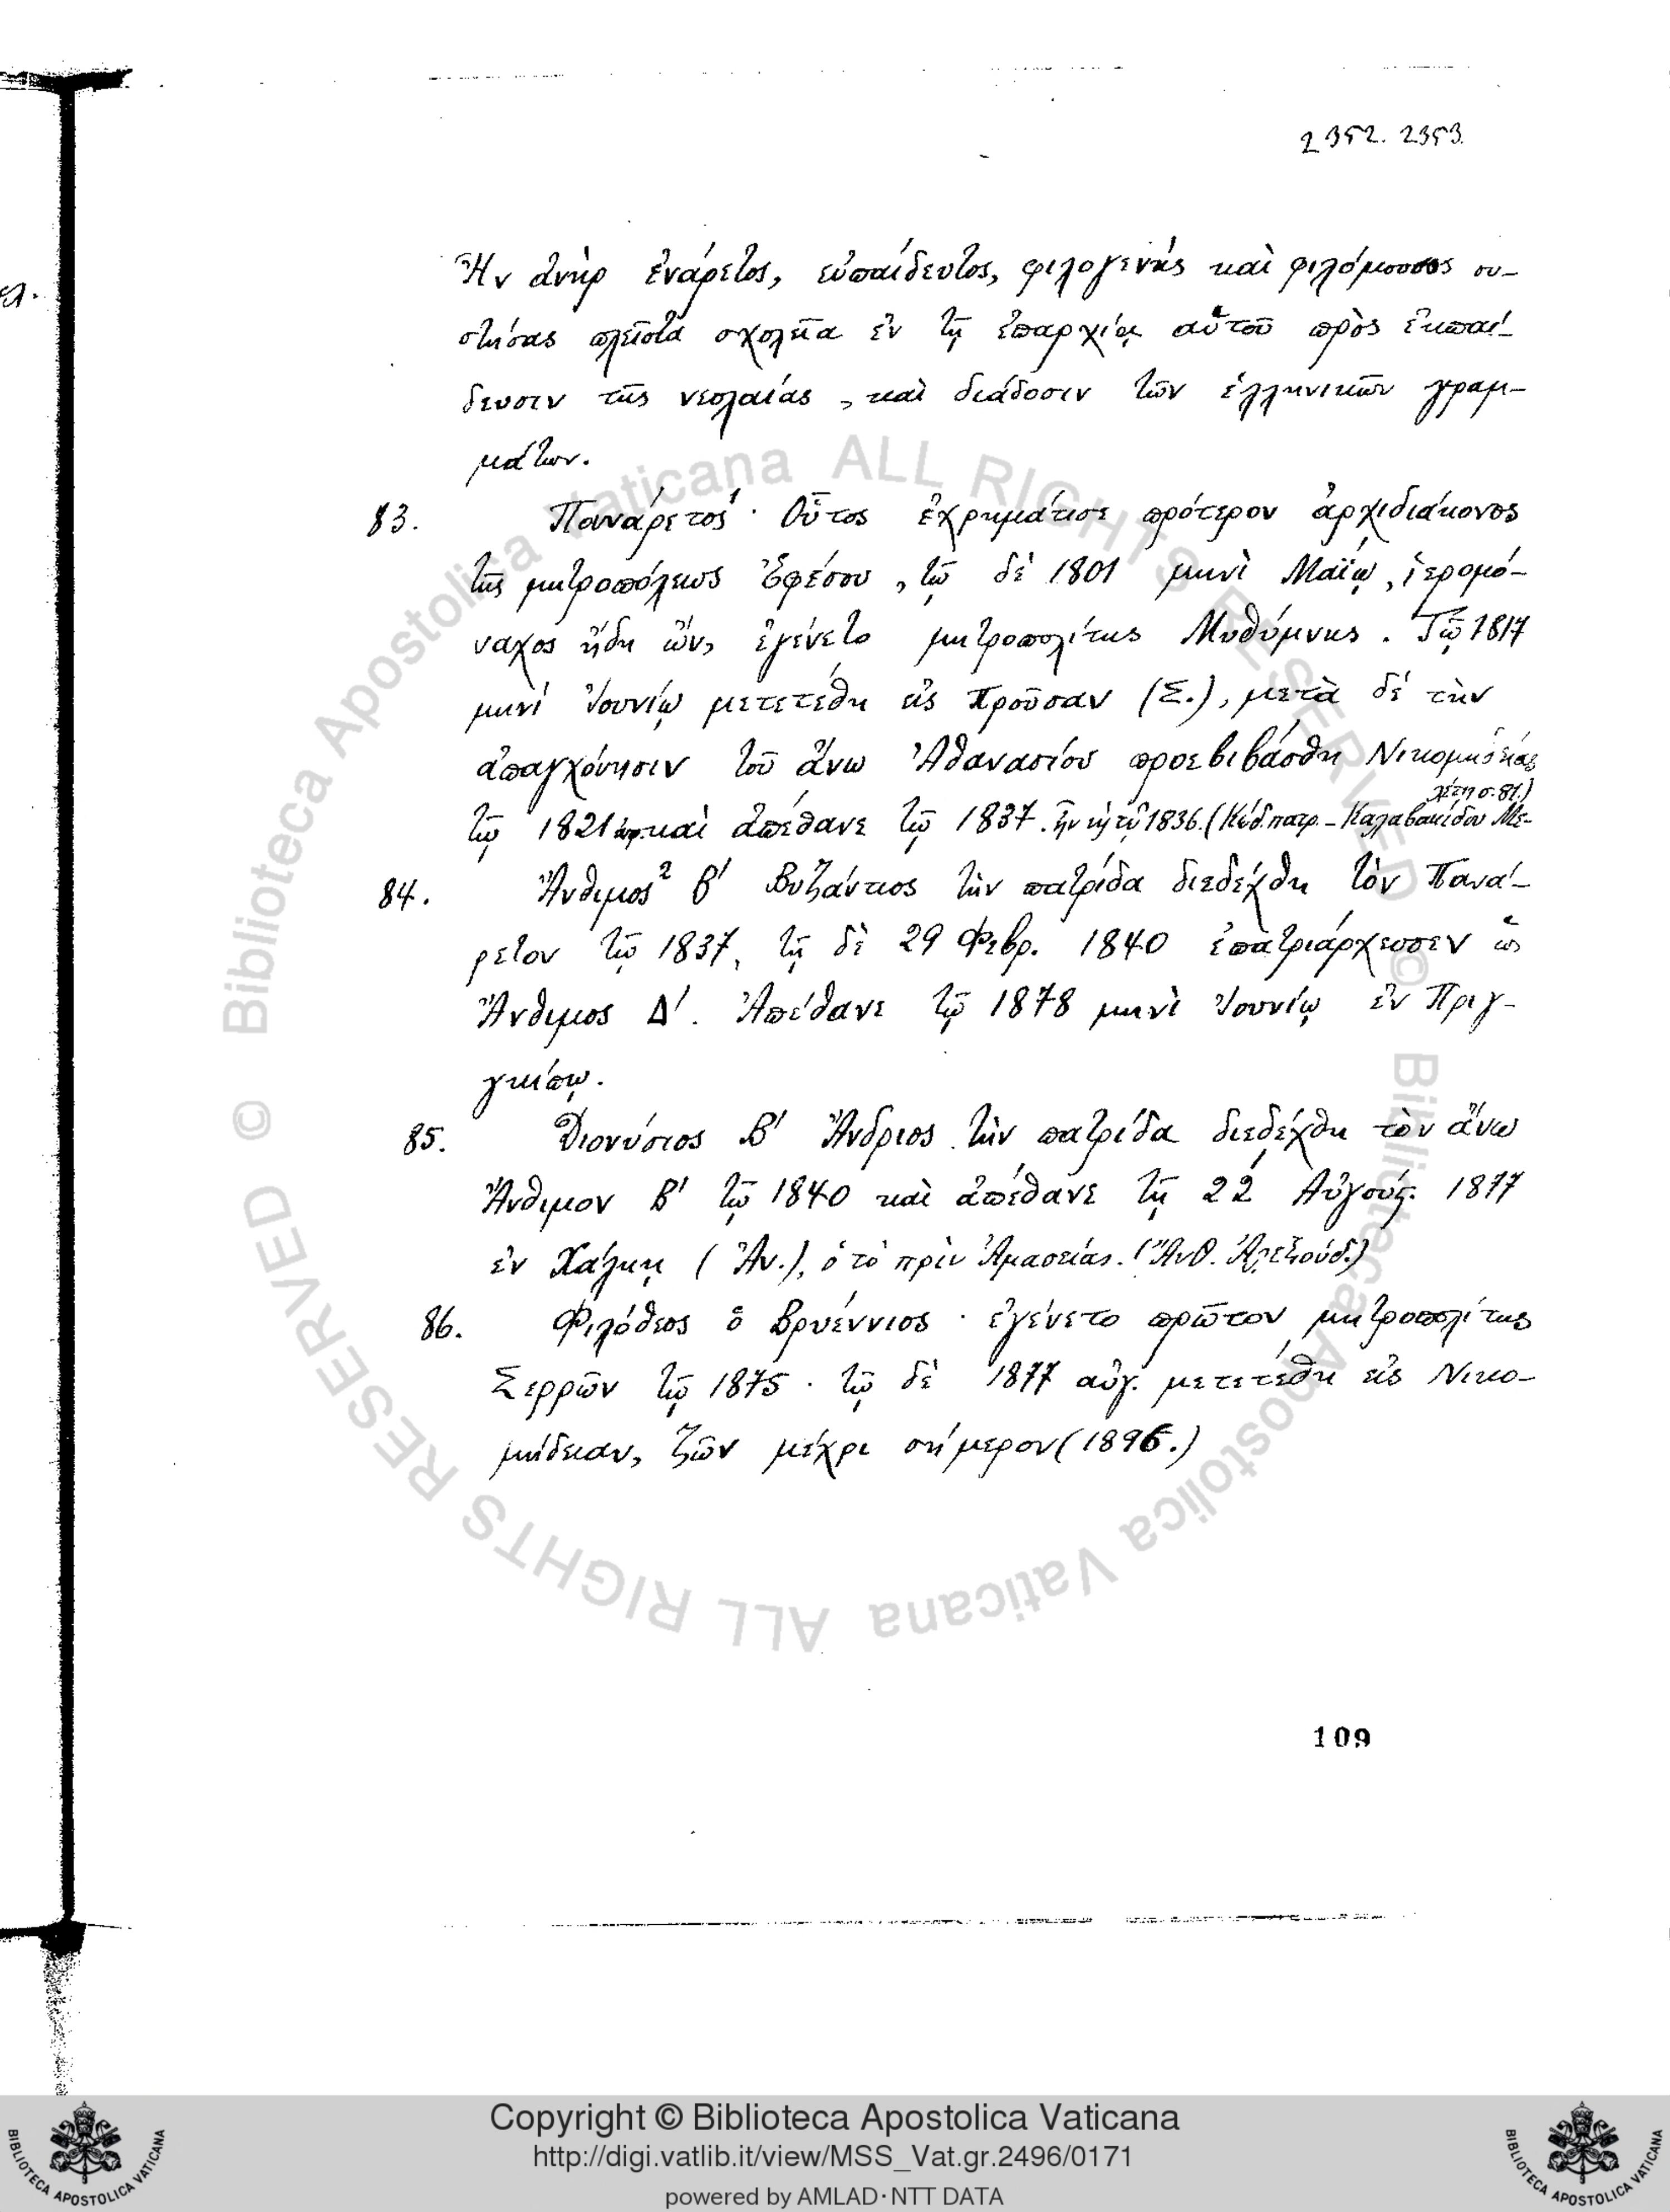 2352. 2353.
Ἦν ἀνὴρ ἐνάρετος, εὐπαίδευτος, φιλογενὴς καὶ φιλόμουσος συ-
στήσας πλεῖστα σχολεῖα ἐν τῇ ἐπαρχίᾳ αὐτοῦ πρὸς ἐκπαί-
δευσιν τῆς νεολαίας, καὶ διάδοσιν τῶν ἑλληνικῶν γραμ-
μάτων.
83. Πανάρετος¹· Οὗτος ἐχρημάτισε πρότερον ἀρχιδιάκονος
τῆς μητροπόλεως Ἐφέσου, τῷ δὲ 1801 μηνὶ Μαΐῳ, ἱερομό-
ναχος ἤδη ὢν, ἐγένετο μητροπολίτης Μηθύμνης. Τῷ 1817
μηνὶ Ἰουνίῳ μετετέθη εἰς Προῦσαν (Σ.), μετὰ δὲ τὴν
ἀπαγχόνησιν τοῦ ἄνω Ἀθανασίου προεβιβάσθη Νικομηδείας
τῷ 1821 καὶ ἀπέθανε τῷ 1837. ἦν τῷ 1836. (Κώδ. πατρ. - Καλαβακίδου Με-
λέτη σ. 81.)
84. Ἄνθιμος² Β′ Βυζάντιος τὴν πατρίδα διεδέχθη τὸν Πανά-
ρετον τῷ 1837, τῇ δὲ 29 Φεβρ. 1840 ἐπατριάρχευσεν ὡς
Ἄνθιμος Δ′. Ἀπέθανε τῷ 1878 μηνὶ Ἰουνίῳ ἐν Πριγ-
γκίπῳ.
85. Διονύσιος Β′ Ἄνδριος τὴν πατρίδα διεδέχθη τὸν ἄνω
Ἄνθιμον Β′ τῷ 1840 καὶ ἀπέθανε τῇ 22 Αὐγούς. 1877
ἐν Χάλκῃ (Ἀν.), ὁ τὸ πρὶν Ἀμασείας. (Ἄνθ. Ἀλεξούδ.)
86. Φιλόθεος ὁ Βρυέννιος· ἐγένετο πρῶτον μητροπολίτης
Σερρῶν τῷ 1875· τῷ δὲ 1877 αὐγ. μετετέθη εἰς Νικο-
μήδειαν, ζῶν μέχρι σήμερον (1896.)
109
© Biblioteca Apostolica Vaticana ALL RIGHTS RESERVED
© Biblioteca Apostolica Vaticana ALL RIGHTS RESERVED
Copyright © Biblioteca Apostolica Vaticana
http://digi.vatlib.it/view/MSS_Vat.gr.2496/0171
powered by AMLAD·NTT DATA
BIBLIOTECA APOSTOLICA VATICANA
BIBLIOTECA APOSTOLICA VATICANA